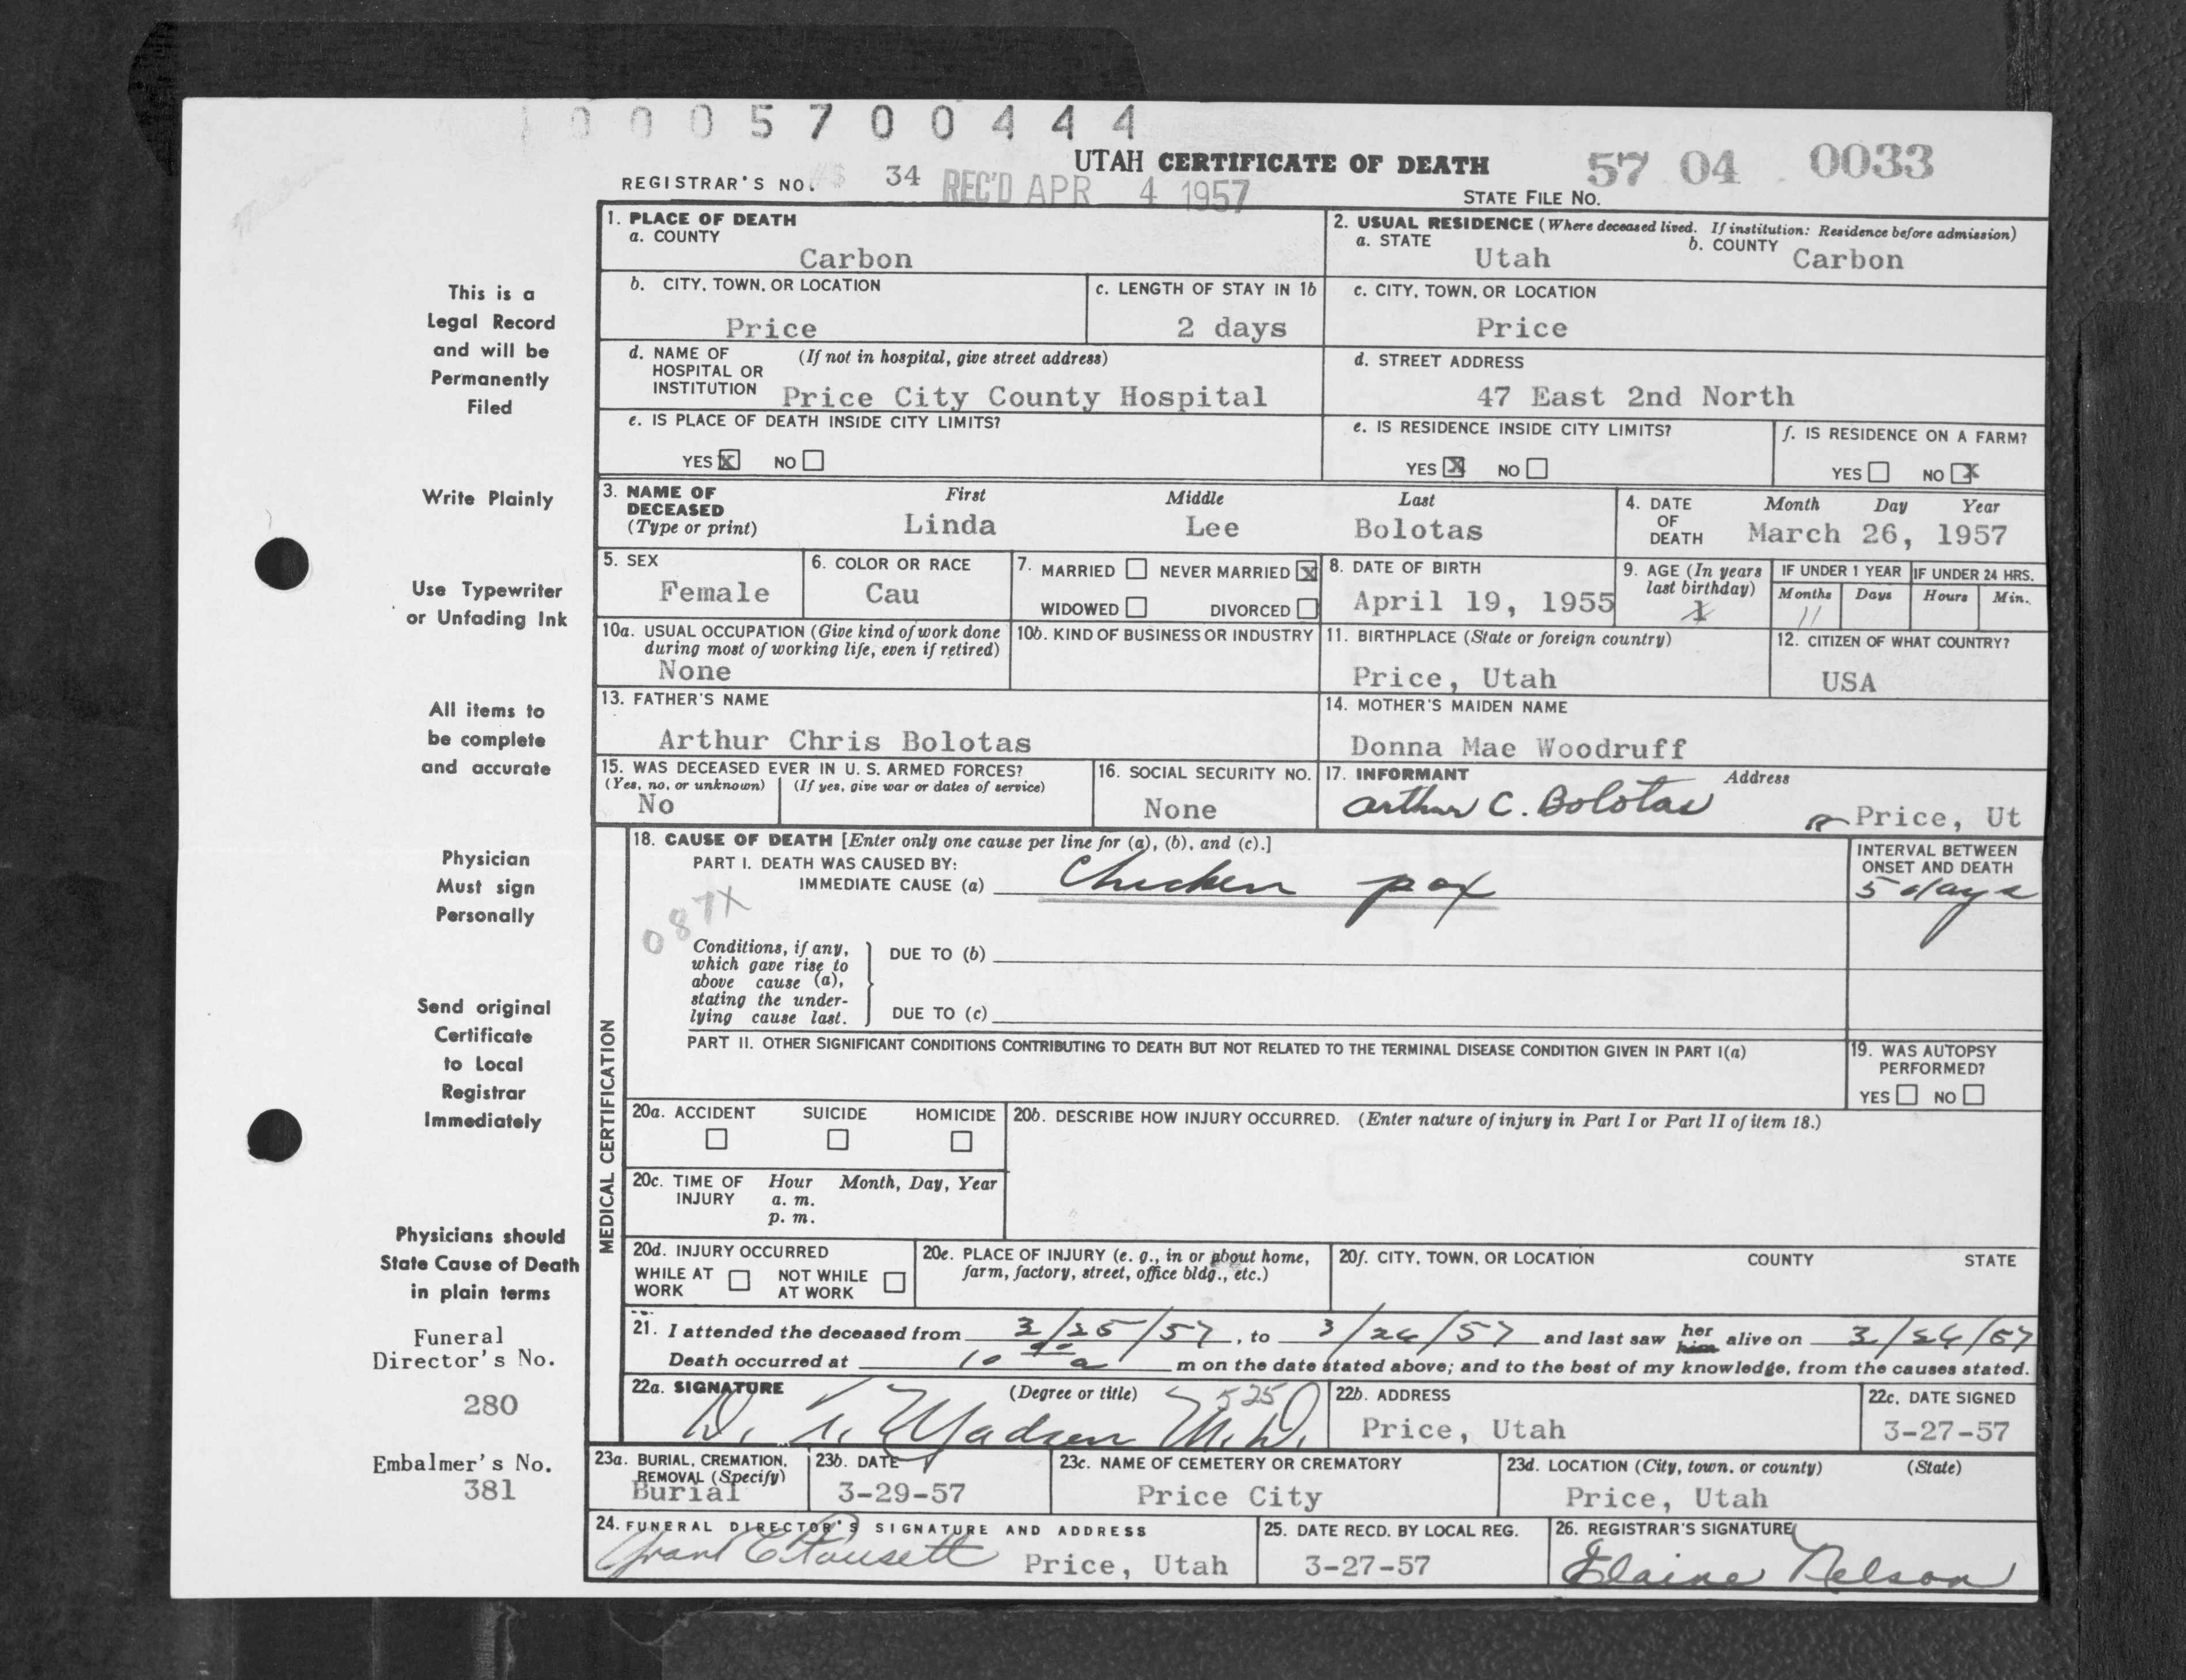 0005700444
UTAH CERTIFICATE OF DEATH
57 04 0033
REGISTRAR'S NO. 34
REC'D APR 4 1957
STATE FILE NO.
1. PLACE OF DEATH
a. COUNTY
Carbon
2. USUAL RESIDENCE (Where deceased lived. If institution: Residence before admission)
a. STATE
Utah
b. COUNTY
Carbon
b. CITY, TOWN, OR LOCATION
Price
c. LENGTH OF STAY IN 1b
2 days
c. CITY, TOWN, OR LOCATION
Price
d. NAME OF HOSPITAL OR INSTITUTION (If not in hospital, give street address)
Price City County Hospital
d. STREET ADDRESS
47 East 2nd North
e. IS PLACE OF DEATH INSIDE CITY LIMITS?
YES X NO
e. IS RESIDENCE INSIDE CITY LIMITS?
YES X NO
f. IS RESIDENCE ON A FARM?
YES NO X
3. NAME OF DECEASED (Type or print)
First Middle Last
Linda Lee Bolotas
4. DATE OF DEATH
Month Day Year
March 26, 1957
5. SEX
Female
6. COLOR OR RACE
Cau
7. MARRIED NEVER MARRIED X
WIDOWED DIVORCED
8. DATE OF BIRTH
April 19, 1955
9. AGE (In years last birthday)
1
IF UNDER 1 YEAR
Months Days
11
IF UNDER 24 HRS.
Hours Min.
10a. USUAL OCCUPATION (Give kind of work done during most of working life, even if retired)
None
10b. KIND OF BUSINESS OR INDUSTRY
11. BIRTHPLACE (State or foreign country)
Price, Utah
12. CITIZEN OF WHAT COUNTRY?
USA
13. FATHER'S NAME
Arthur Chris Bolotas
14. MOTHER'S MAIDEN NAME
Donna Mae Woodruff
15. WAS DECEASED EVER IN U. S. ARMED FORCES?
(Yes, no, or unknown) (If yes, give war or dates of service)
No
16. SOCIAL SECURITY NO.
None
17. INFORMANT Address
Arthur C. Bolotas Price, Ut
MEDICAL CERTIFICATION
18. CAUSE OF DEATH [Enter only one cause per line for (a), (b), and (c).]
PART I. DEATH WAS CAUSED BY:
IMMEDIATE CAUSE (a) Chicken pox
INTERVAL BETWEEN ONSET AND DEATH
5 days
087X
Conditions, if any, which gave rise to above cause (a), stating the underlying cause last.
DUE TO (b)
DUE TO (c)
PART II. OTHER SIGNIFICANT CONDITIONS CONTRIBUTING TO DEATH BUT NOT RELATED TO THE TERMINAL DISEASE CONDITION GIVEN IN PART I(a)
19. WAS AUTOPSY PERFORMED?
YES NO
20a. ACCIDENT SUICIDE HOMICIDE
20b. DESCRIBE HOW INJURY OCCURRED. (Enter nature of injury in Part I or Part II of item 18.)
20c. TIME OF INJURY Hour Month, Day, Year
a. m.
p. m.
20d. INJURY OCCURRED
WHILE AT WORK NOT WHILE AT WORK
20e. PLACE OF INJURY (e. g., in or about home, farm, factory, street, office bldg., etc.)
20f. CITY, TOWN, OR LOCATION COUNTY STATE
21. I attended the deceased from 3/25/57, to 3/26/57 and last saw her him alive on 3/26/57
Death occurred at 10 a m on the date stated above; and to the best of my knowledge, from the causes stated.
22a. SIGNATURE (Degree or title)
Madsen M.D.
525
22b. ADDRESS
Price, Utah
22c. DATE SIGNED
3-27-57
23a. BURIAL, CREMATION, REMOVAL (Specify)
Burial
23b. DATE
3-29-57
23c. NAME OF CEMETERY OR CREMATORY
Price City
23d. LOCATION (City, town, or county) (State)
Price, Utah
24. FUNERAL DIRECTOR'S SIGNATURE AND ADDRESS
Price, Utah
25. DATE RECD. BY LOCAL REG.
3-27-57
26. REGISTRAR'S SIGNATURE
Elaine Nelson
This is a
Legal Record
and will be
Permanently
Filed
Write Plainly
Use Typewriter
or Unfading Ink
All items to
be complete
and accurate
Physician
Must sign
Personally
Send original
Certificate
to Local
Registrar
Immediately
Physicians should
State Cause of Death
in plain terms
Funeral
Director's No.
280
Embalmer's No.
381